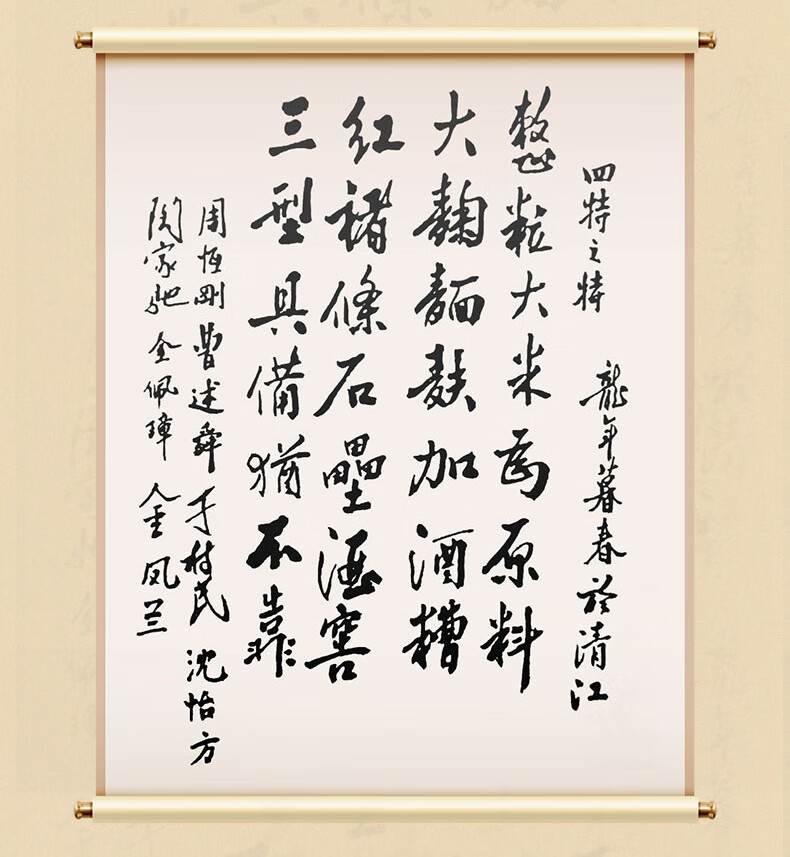 四特之特 龍年暮春於清江
整粒大米為原料
大麴麵麩加酒糟
紅褚條石壘酒窖
三型具備猶不靠
周恆剛 曹述舜 于树民 沈怡方
陶家馳 全佩璋 金凤兰